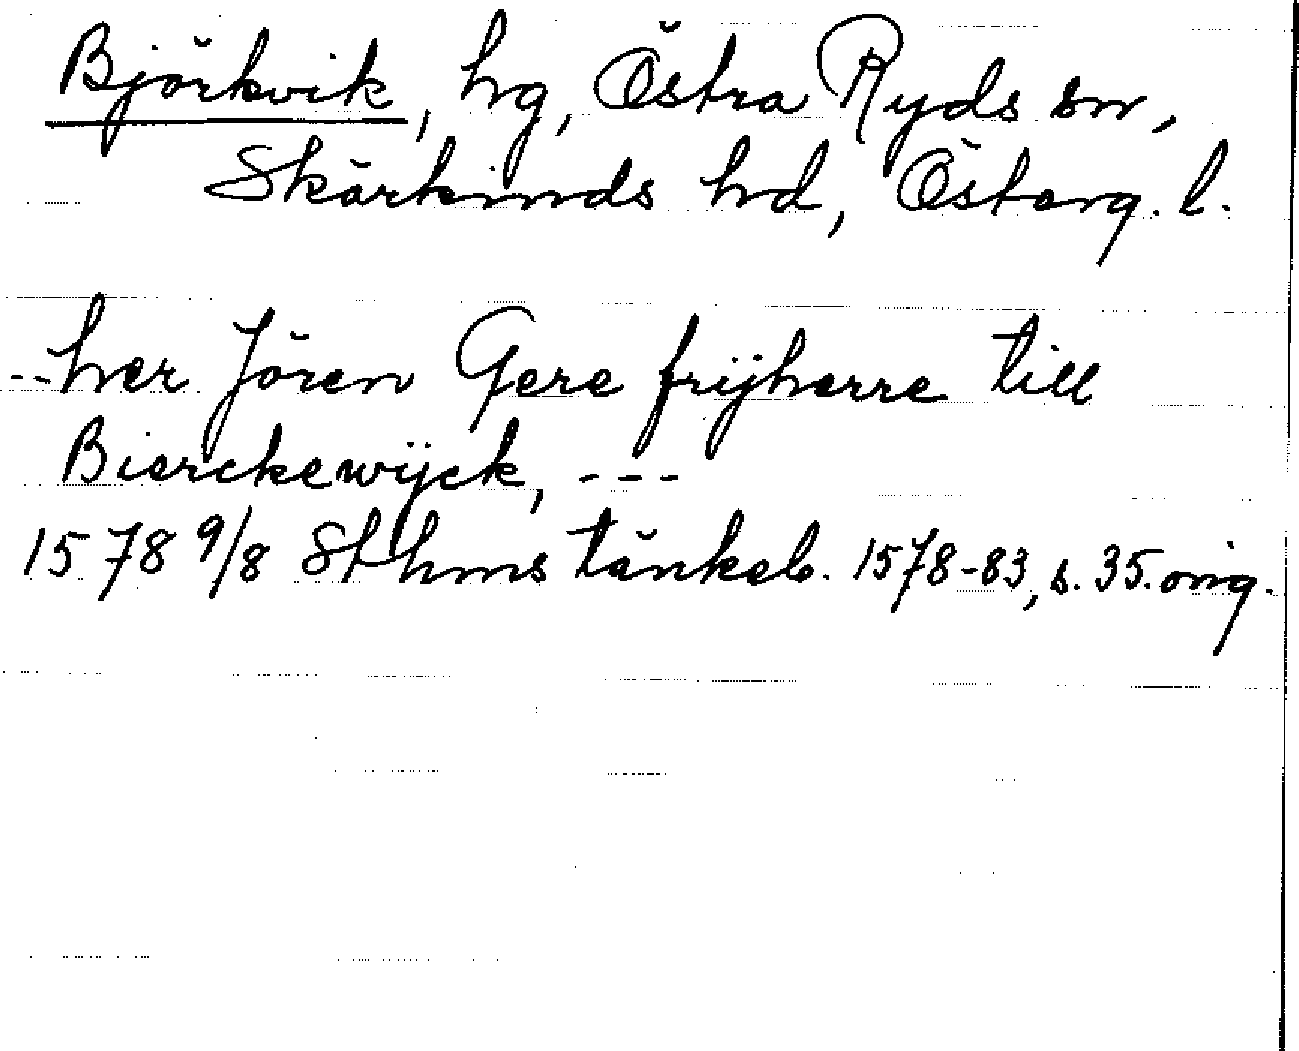 Björkvik, hg, Östra Ryds sn,
Skärkinds hd, Österg. l.
--her Jören Gere frijherre till
Bierckewijck, ---
1578 9/8 Sthms tänkeb. 1578-83, s. 35. orig.